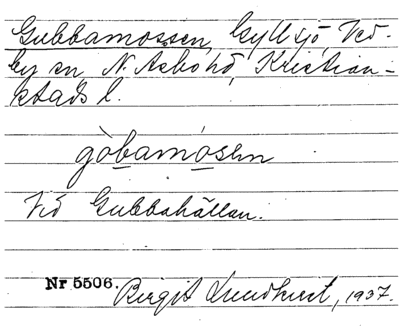 Gubbamossen, Gyllsjö, Ved-
by sn, N. Åsbo hd, Kristian-
stads l.
gòbamósen
Vid Gubbahällan.
Nr 5506. Birgit Lundkvist, 1937.